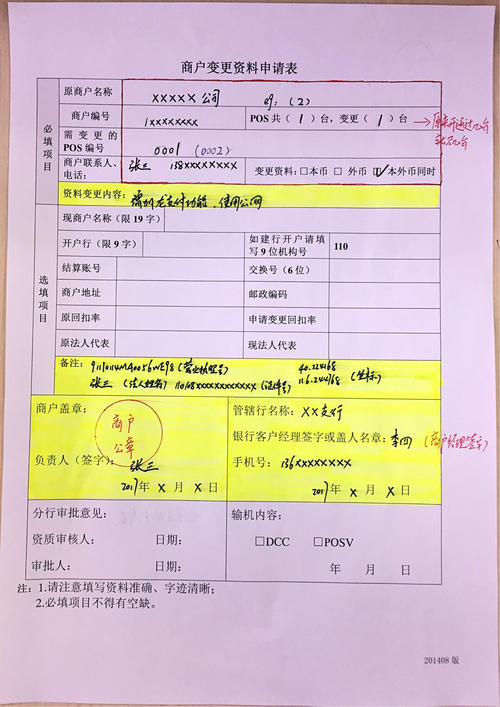 商户变更资料申请表
必填项目
原商户名称 XXXXX公司 eg:(2)
商户编号 1XXXXXXXX POS共(1)台,变更(1)台
需变更的POS编号 0001 (0002)
商户联系人、电话: 张三 138XXXXXXXX 变更资料:□本币 □外币 ☑本外币同时
资料变更内容: 增加龙支付功能,使用公网
选填项目
现商户名称(限19字)
开户行(限9字) 如建行开户请填写9位机构号 110
结算账号 交换号(6位)
商户地址 邮政编码
原回扣率 申请变更回扣率
原法人代表 现法人代表
备注: (营业执照号) 40.224168
张三 (法人姓名) 110108XXXXXXXXXXXX (证件号) 116.244168 (坐标)
商户盖章: 管辖行名称: XX支行
商户公章
银行客户经理签字或盖人名章: 李四 (客户经理签字)
负责人(签字): 张三 手机号: 136XXXXXXXX
2017年 X 月 X 日 2017年 X 月 X 日
分行审批意见: 输机内容:
资质审核人: 日期: □DCC □POSV
审批人: 日期: 年 月 日
注:1.请注意填写资料准确、字迹清晰;
2.必填项目不得有空缺。
201408 版